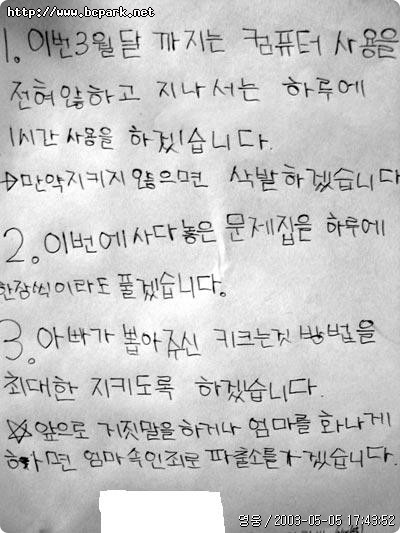 http://www.bcpark.net
1. 이번 3월 달 까지는 컴퓨터 사용을
전혀 않하고 지나서는 하루에
1시간 사용을 하겠습니다.
→만약지키지 않으면 삭발하겠습니다
2. 이번에 사다놓은 문제집을 하루에
한장씩이라도 풀겠습니다.
3. 아빠가 뽑아주신 키크는것 방법을
최대한 지키도록 하겠습니다.
☆앞으로 거짓말을하거나 엄마를 화나게
하면 엄마속인죄로 파출소를가겠습니다.
영웅 / 2003-05-05 17:43:52